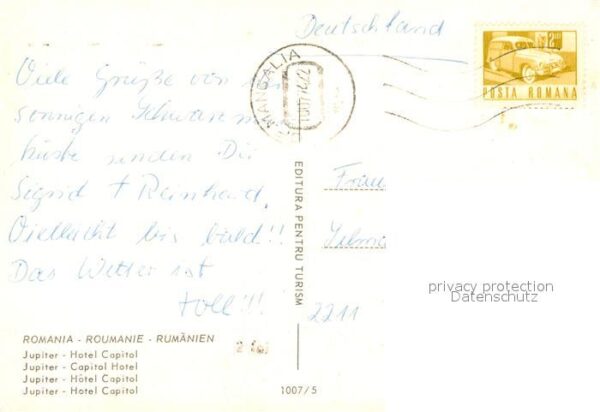 Deutschland
POSTA ROMANA
MANGALIA
Viele Grüße von der
sonnigen Schwarzmeer
küste senden Dir
Sigrid + Reinhard.
Vielleicht bis bald!!
Das Wetter ist
toll!!!
EDITURA PENTRU TURISM
Frau
2211
privacy protection
Datenschutz
ROMANIA - ROUMANIE - RUMÄNIEN
Jupiter - Hotel Capitol
Jupiter - Capitol Hotel
Jupiter - Hôtel Capitol
Jupiter - Hotel Capitol
1007/5